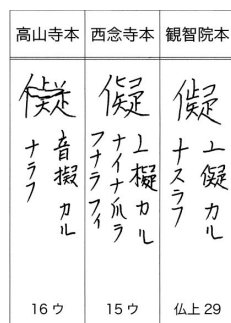 高山寺本
西念寺本
観智院本
儗
音擬 カル
ナラフ
儗
上擬 カル
ナイナ爪ラ
フナラフィ
儗
上儗 カル
ナスラフ
16 ウ
15 ウ
仏上 29